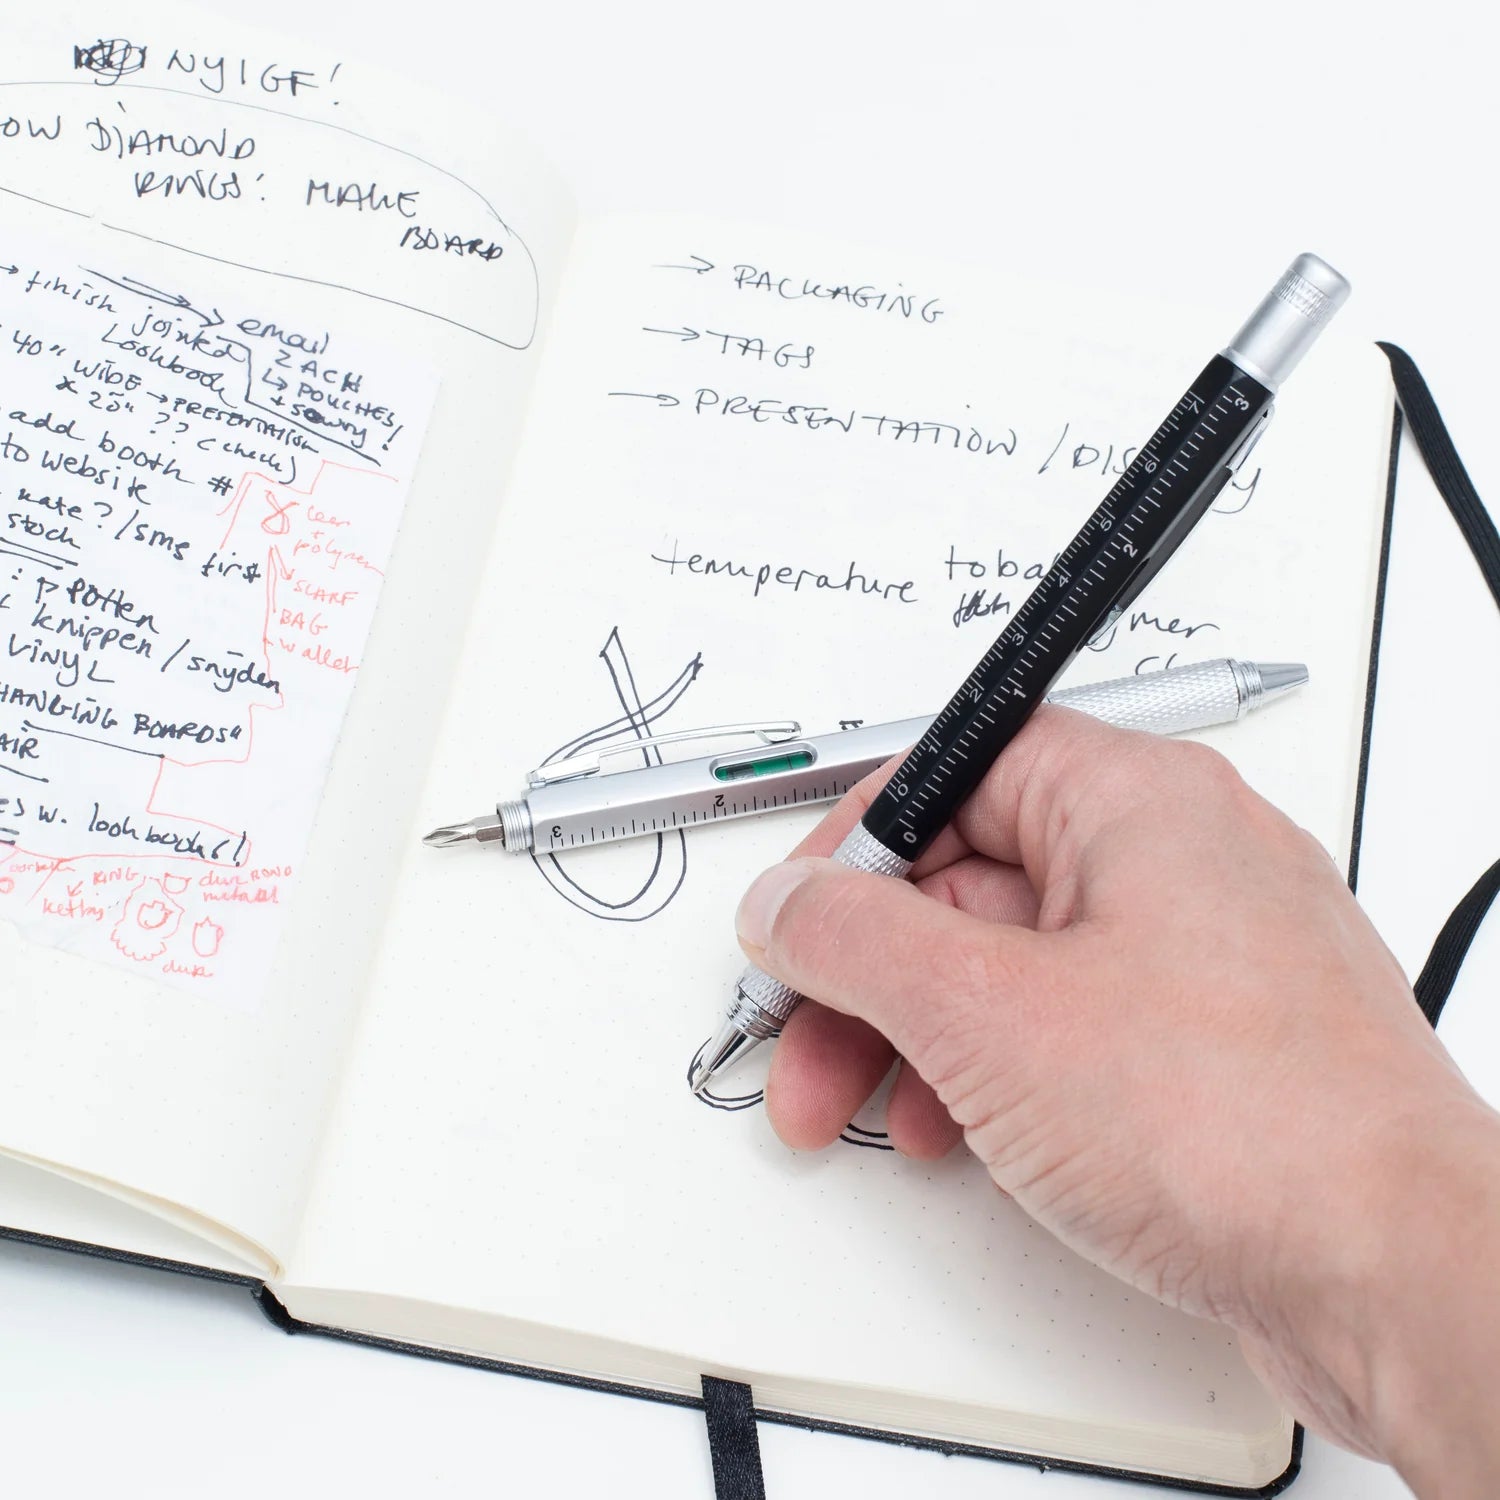 NYIGF!
OW DIAMOND
RINGS! MAKE
BOARD
→ finish jointed
Lookbook
→ email
ZACH
↳ POUCHES!
+ sowry!
40" WIDE → PRESENTATION
x 20" ?? (check)
add booth #
to website
kate? / sms first
stock
: P POtten
knippen / snyden
VINYL
HANGING BOARDS"
AIR
ES w. lookbooks!
leer
+
polymer
SCARF
BAG
wallet
RING
metaal
→ PACKAGING
→ TAGS
→ PRESENTATION / DIS
y
temperature toba
ymer
3 2
0 1 2 3
0 1 2 3 4 5 6 7
3